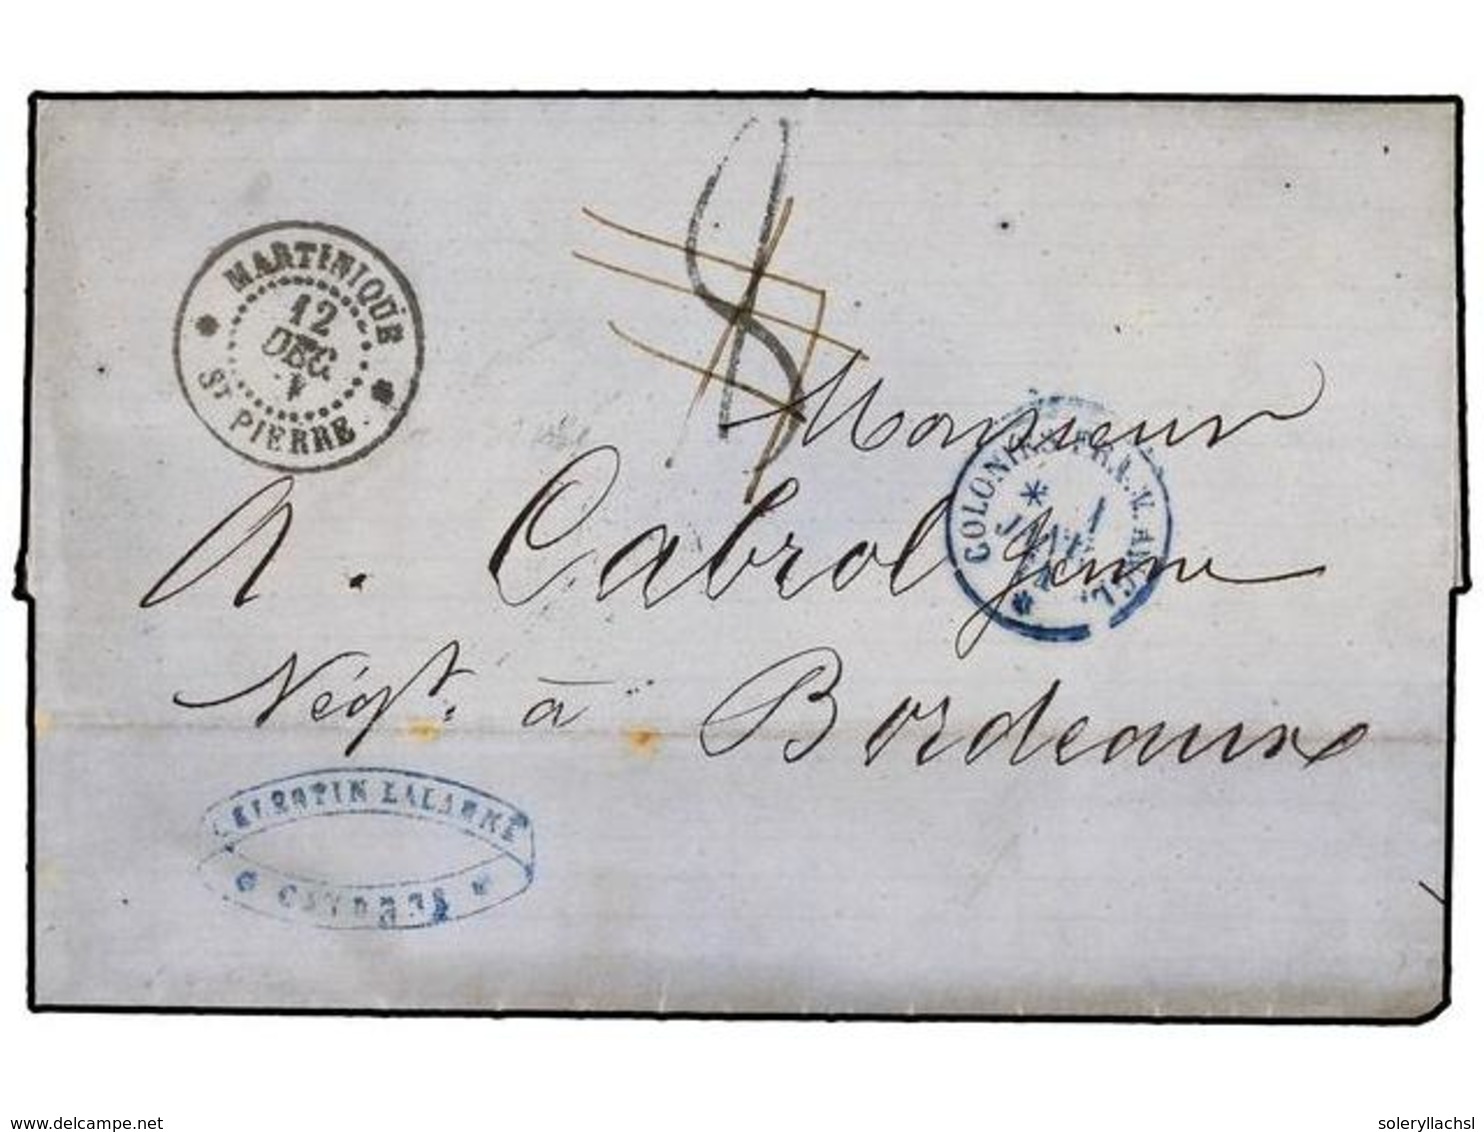 MARTINIQUE
12
DEC
ST PIERRE
8
Monsieur
A. Cabrol Jeune
Négt. à Bordeaux
COLONIES FRA. V. ANGL.
CELESTIN LALANNE
CAYENNE
www.delcampe.net
soleryllachsl